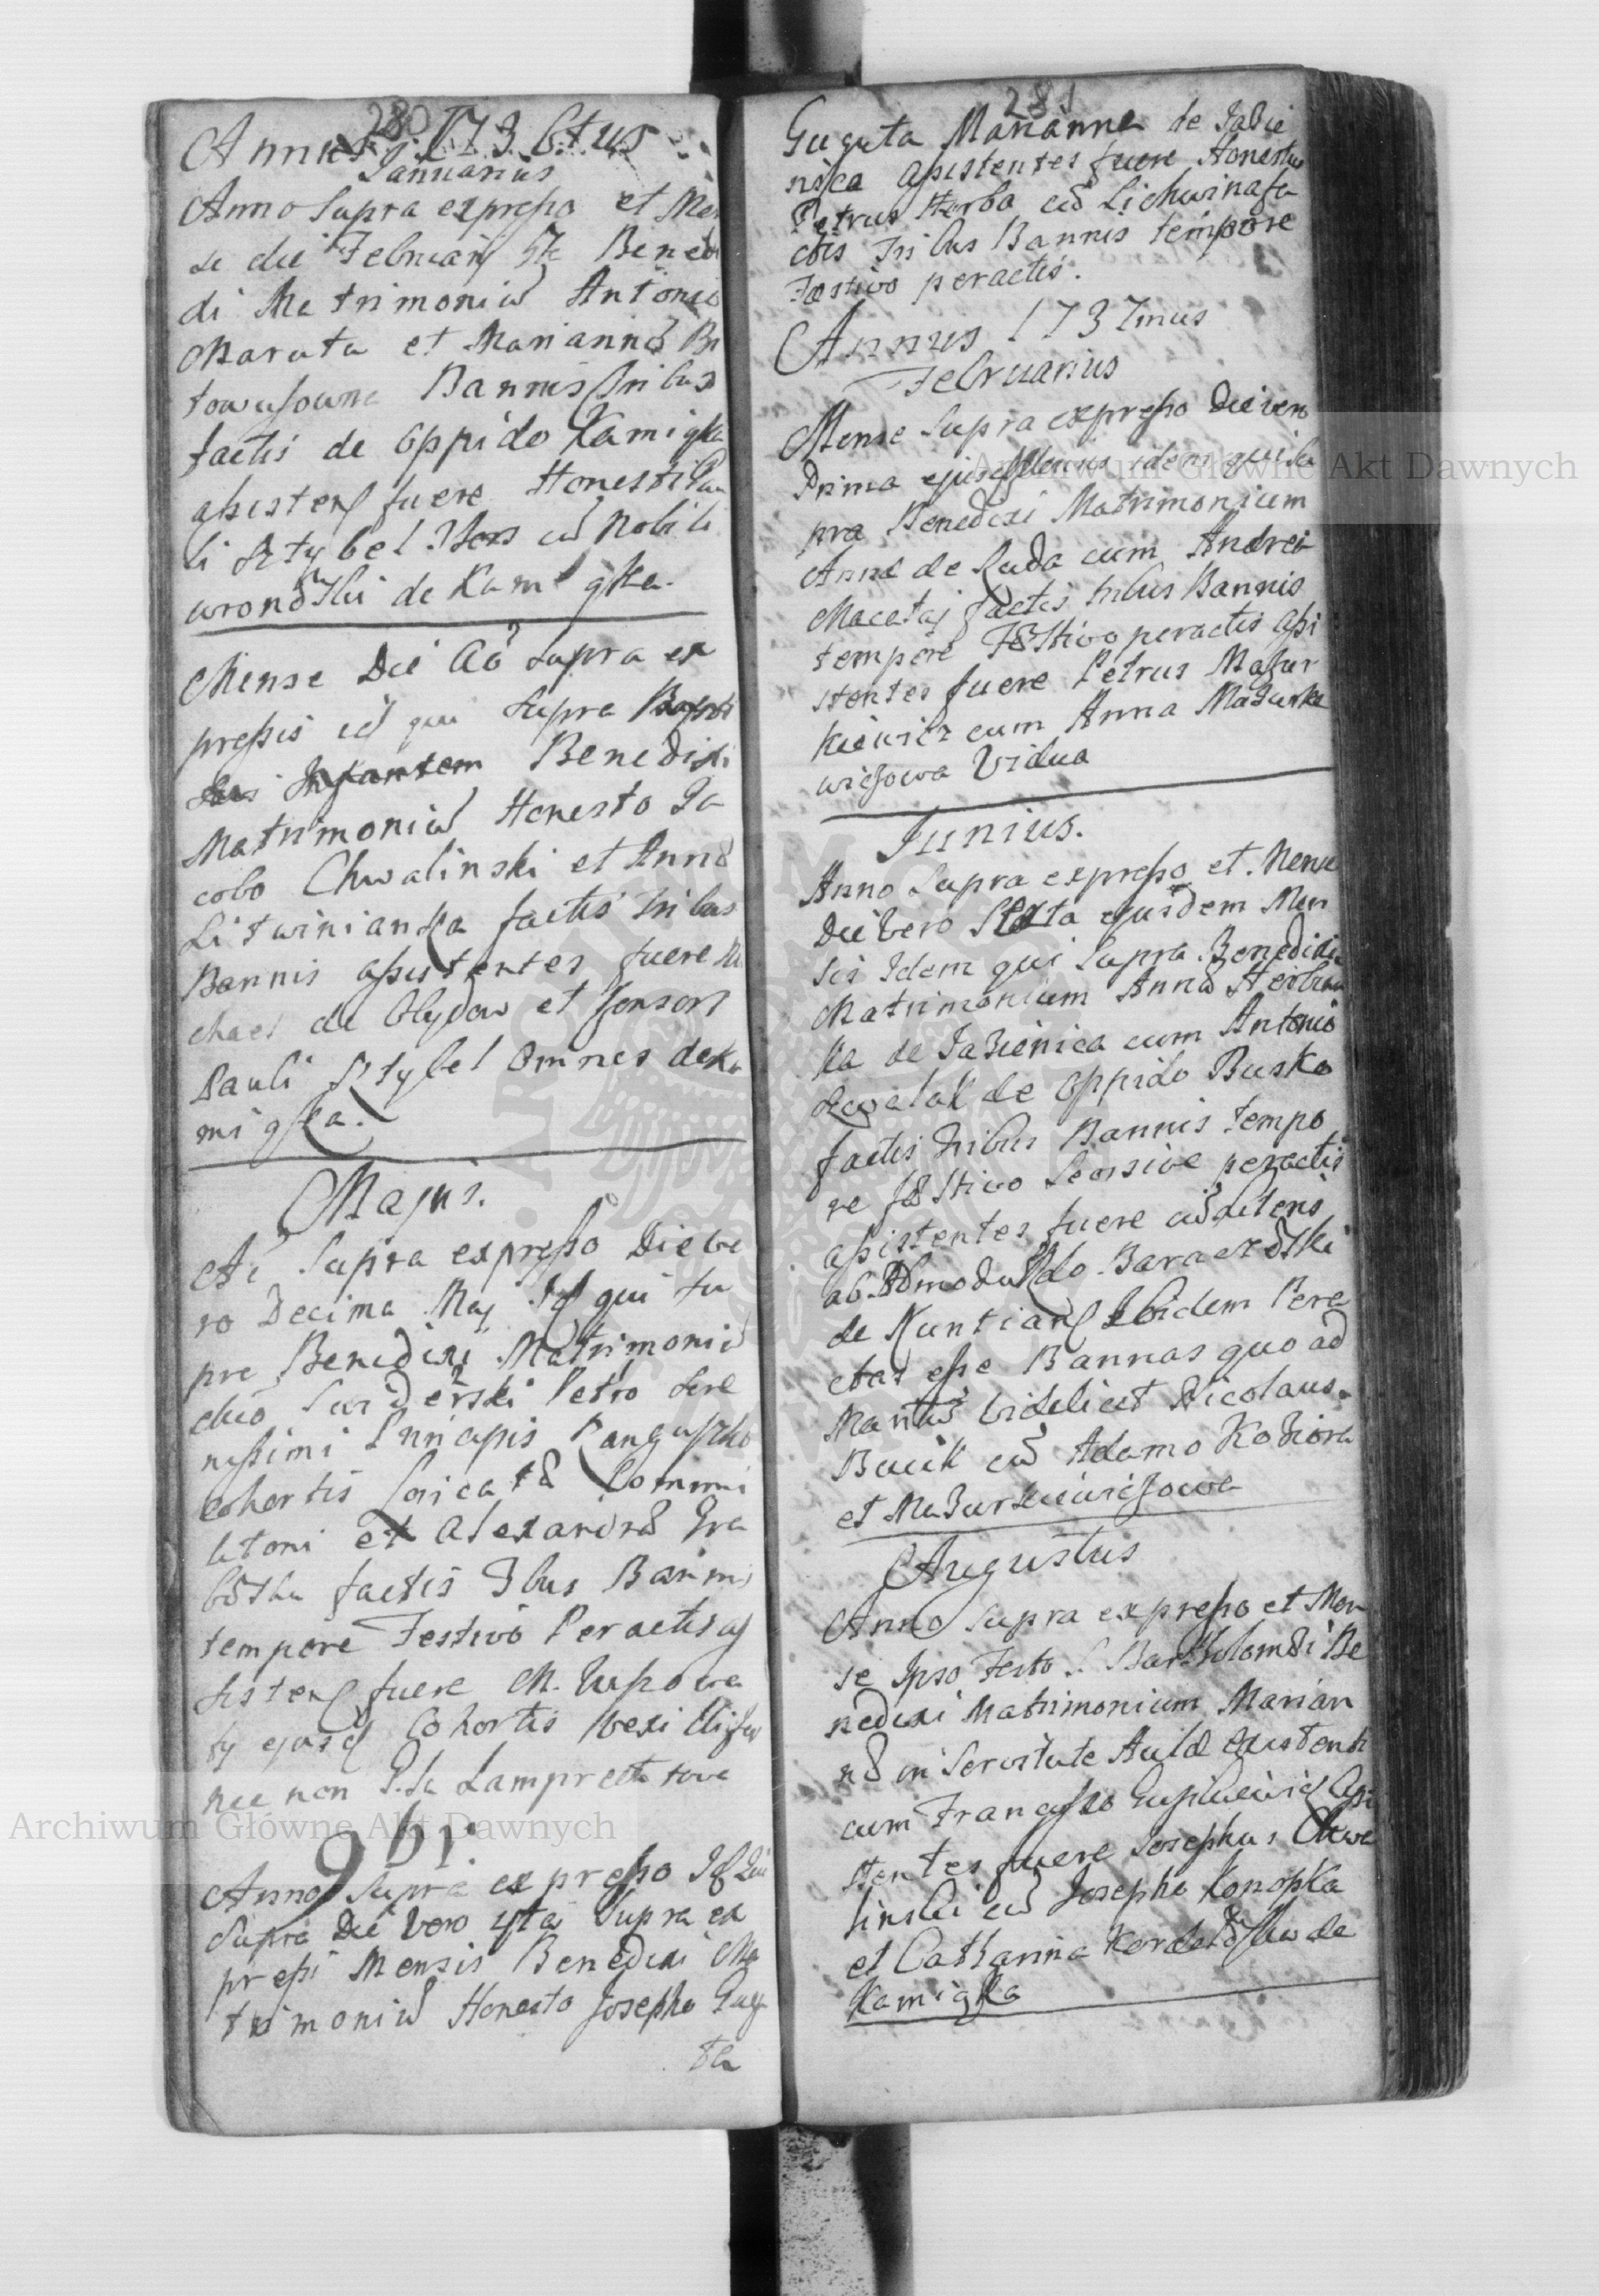 280
Annus 1736tus
Januarius
Anno Supra expresso et Men
se die Februarij Benedi
di Matrimoniũ Antonio
Marata et Mariannæ Bi
towusowna Bannis tribus
factis de Oppido Kamiąka
assisten fuere Honesti Pau
li Sztybel cũ Nobili
wronoski de Kamiąka.
Mense Die Aõ supra ex
pressis id qui supra
Infantem Benedixi
Matrimoniũ Honesto Ja
cobo Chwalinski et Annæ
Litwinianka factis tribus
Bannis assistentes fuere Mi
chael de Olydow et
Pauli Sztybel Omnes de Ka
miąka.
Majus.
Aõ Supra expresso Die ve
ro Decima Maij Id qui su
pra Benedixi Matrimoniũ
Swiderski Petro Sere
nissimi Principis Sanguszko
cohortis Loricatæ Commi
litoni et Alexandræ Gra
boska factis 3bus Bannis
tempore Festivo Peractis as
sisten fuere M.
ty ejusd Cohortis Vexillifer
nec non Lamprechtowa
9br
Anno Supra expresso Id Qui
Supra Die vero Supra ex
pressi Mensis Benedixi Ma
trimoniũ Honesto Josepho Gugu
ta
281
Guguta Marianna de Jazie
nica Assistentes fuere Honestus
Petrus Horba cũ Lichwinasta
ctis Tribus Bannis tempore
Festivo peractis.
Annus 1737mus
Februarius
Mense Supra expresso Die vero
Prima ejusd Mensis idem qui su
pra Benedixi Matrimonium
Anna de Ruda cum Andrea
Macetaj factis tribus Bannis
tempore Fæstivo peractis Assi
stentes fuere Petrus Mazur
kiewicz cum Anna Mazurka
wiczowa Vidua
Junius.
Anno Supra expresso et Mense
Die Vero Sexta ejusdem Men
sis Idem qui Supra Benedixi
Matrimonium Annæ Herbow
ka de Jazienica cum Antonio
de Oppido Buska
factis tribus Bannis tempo
re fæstivo Seorsive peractis
assistentes fuere cũ literis
ab Admodum Rdo Baraczoski
de Ibidem Pera
ctas esse Bannas quo ad
Maritũ Videlicet Nicolaus
Bucik cũ Adamo Koziora
et Mazurkiewiczowa
Augustus
Anno Supra expresso et Men
se Ipso Festo S. Bartholomæi Be
nedixi Matrimonium Marian
næ in Servitute Aulæ existenti
cum Francisco Assi
stentes fuere Josephus Chwa
linski cũ Josepho Konopka
et Catharina de
Kamiąka
Archiwum Główne Akt Dawnych
Archiwum Główne Akt Dawnych